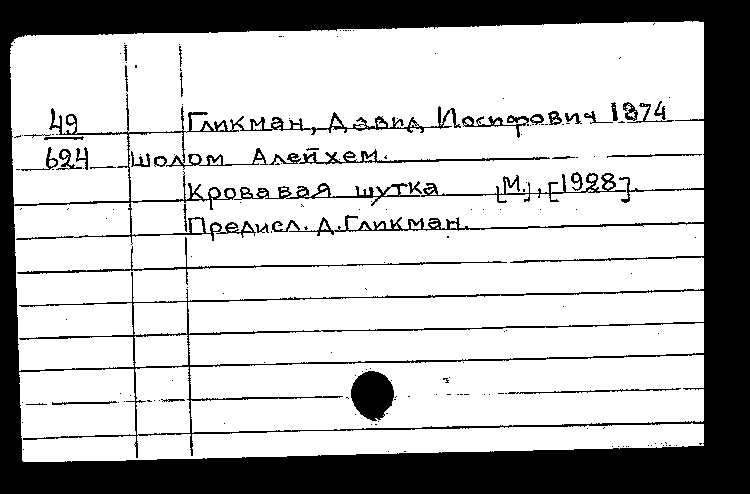 49 Гликман, Давид Иосифович 1874
624 Шолом Алейхем.
Кровавая шутка [М.], [1928].
Предисл. Д. Гликман.